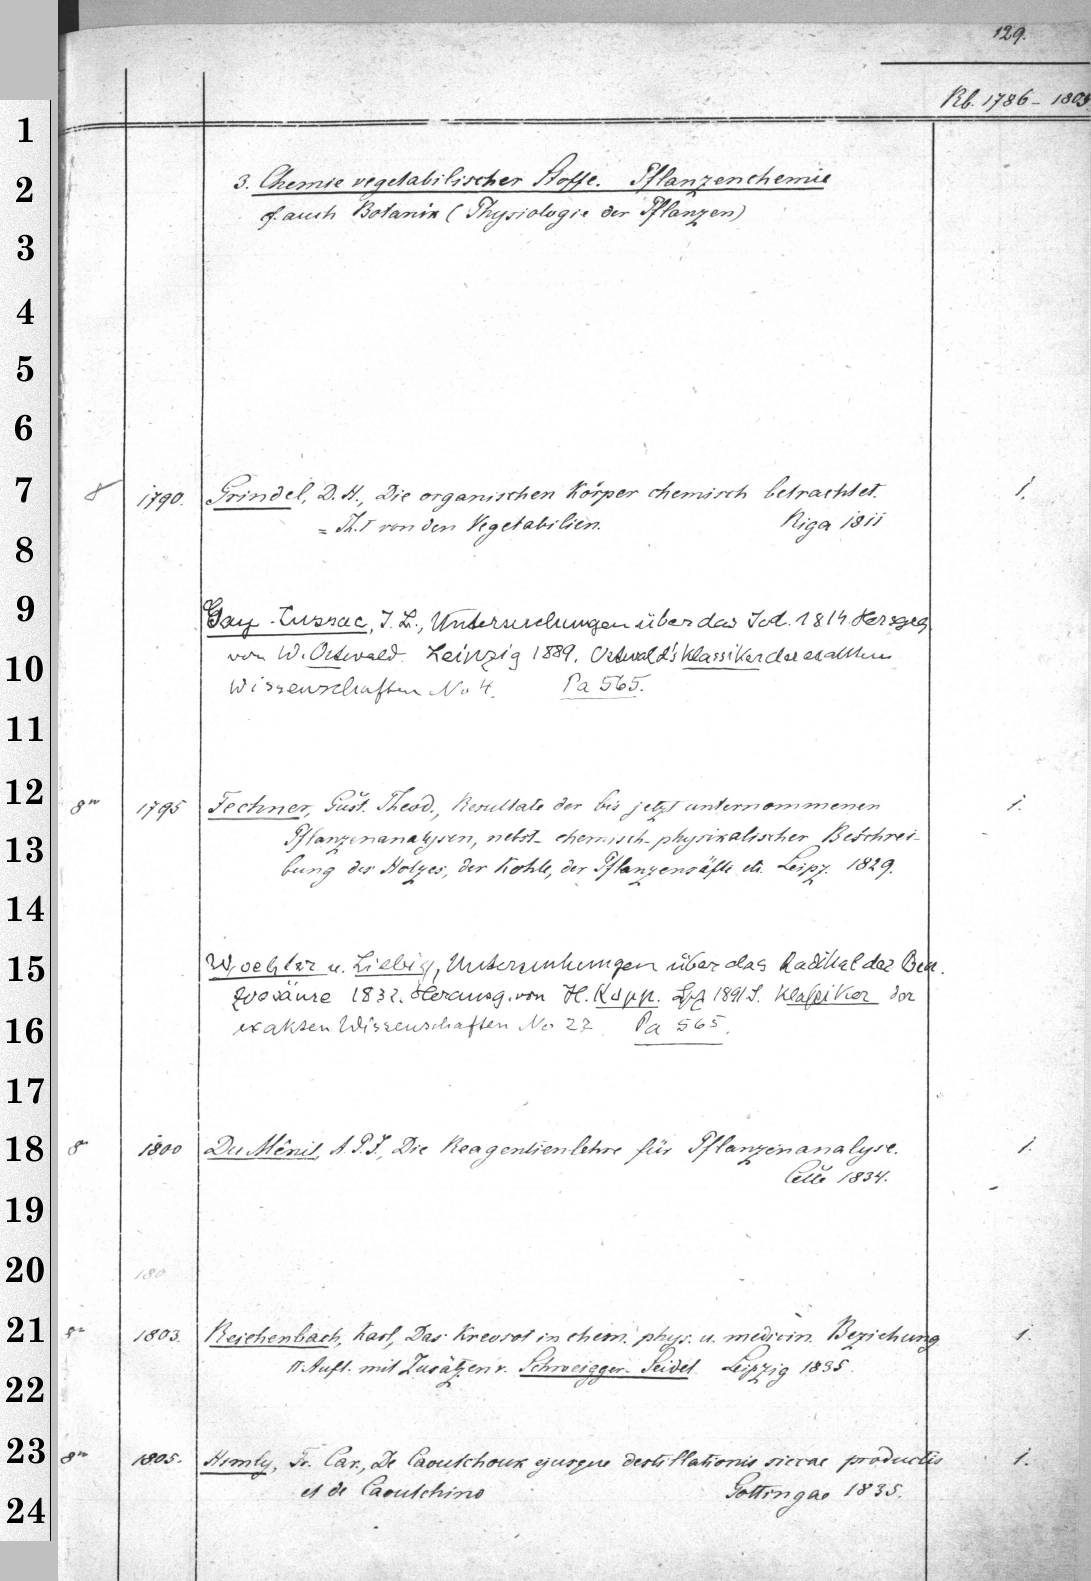 129.
Rb. 1786 - 1805
1
2 3. Chemie vegetabilischer Stoffe. Pflanzenchemie
cf. auch Botanik (Physiologie der Pflanzen)
3
4
5
6
7 8 1790. Grindel, D. H., Die organischen Körper chemisch betrachtet. 1.
= Th. I von den Vegetabilien. Riga 1811
8
9 Gay-Lussac, J. L., Untersuchungen über das Jod. 1814. Herausgeg.
10 von W. Ostwald. Leipzig 1889. Ostwald's Klassiker der exakten
Wissenschaften No 4. Pa 565.
11
12 8° 1795 Fechner, Gust. Theod., Resultate der bis jetzt unternommenen 1.
13 Pflanzenanalysen, nebst chemisch-physikalischer Beschrei-
bung des Holzes, der Kohle, der Pflanzensäfte etc. Leipz. 1829.
14
15 Woehler u. Liebig, Untersuchungen über das Radikal der Ben-
zoesäure 1832. Herausg. von H. Kopp. Lpz 1891 Klassiker der
16 exakten Wissenschaften No 22 Pa 565.
17
18 8° 1800 Du Mênil, A. P. J., Die Reagentienlehre für Pflanzenanalyse. 1.
Celle 1834.
19
20 180
21 8° 1803. Reichenbach, Karl, Das Kreosot in chem. phys. u. medicin. Beziehung 1.
II. Aufl. mit Zusätzen v. Schweigger-Seidel Leipzig 1835.
22
23 8° 1805. Himly, Fr. Car., De Caoutchouk ejusque destillationis siccae productis 1.
et de Caoutchino Gottingae 1835.
24